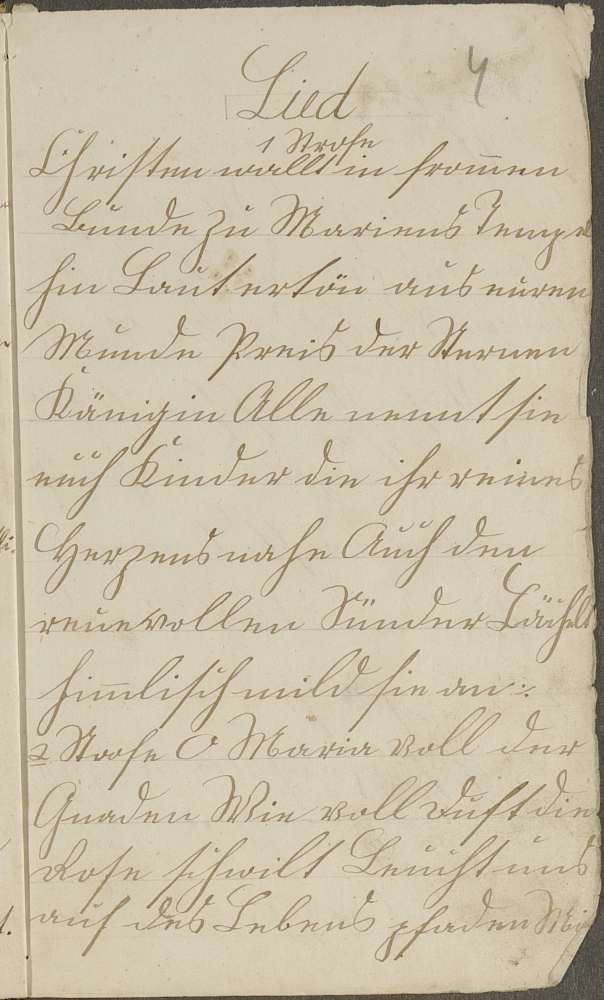 4
Lied
1 Strofe
Christen wallt in from̅en
Bunde zu Mariens Tempel
hin Lauter tön aus euren
Munde Preis der Sternen
Känigin Alle nennt sie
euch Kinder die ihr reines
Herzens nahe Auch den
reuevollen Sünder Lächelt
him̅lisch mild sie an :.
2 Strofe O Maria voll der
Gnaden Wie voll Duft die
Rose schwilt Leucht uns
auf des Lebens pfaden